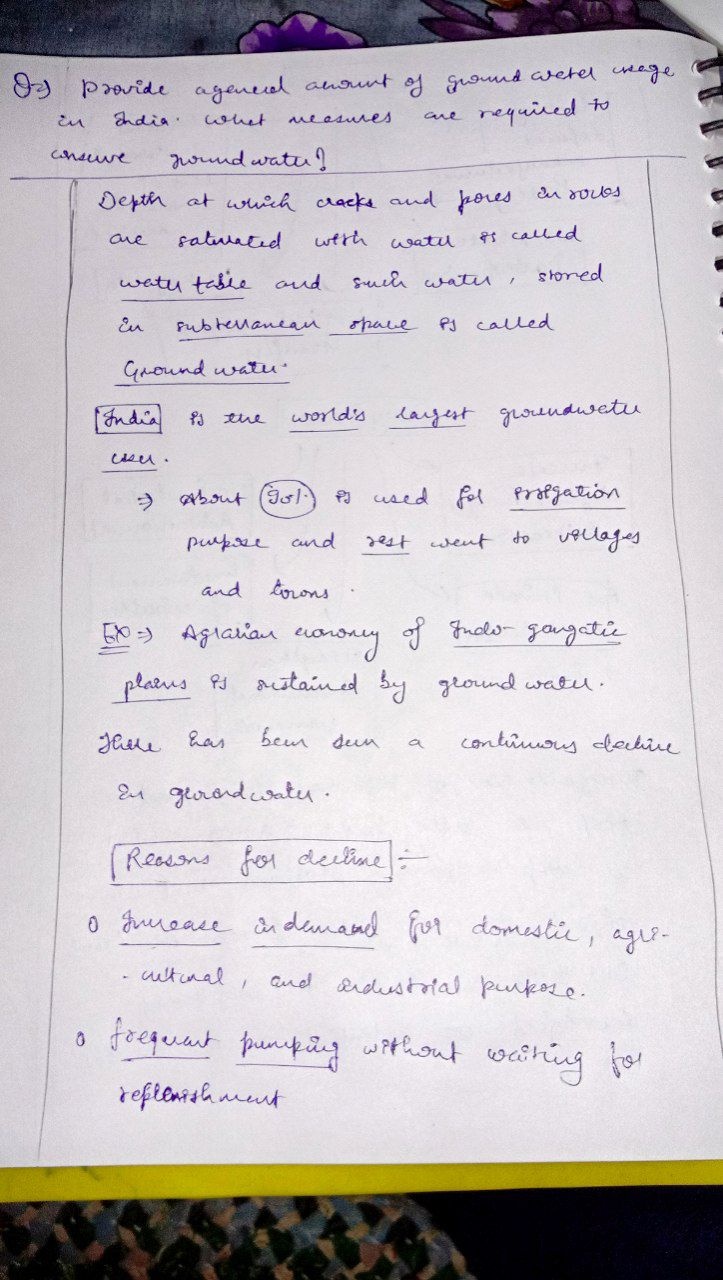 Q⇒) Provide a general amount of ground water usage
in India. What measures are required to
conserve groundwater?
Depth at which cracks and pores in rocks
are saturated with water is called
water table and such water, stored
in subterranean space is called
Ground water.
India is the world's largest groundwater
user.
⇒ About 90% is used for irrigation
purpose and rest went to villages
and towns.
EX ⇒ Agrarian economy of Indo-gangatic
plains is sustained by ground water.
There has been seen a continuous decline
in groundwater.
Reasons for decline ÷
o Increase in demand for domestic, agri-
- cultural, and industrial purpose.
o frequent pumping without waiting for
replenishment